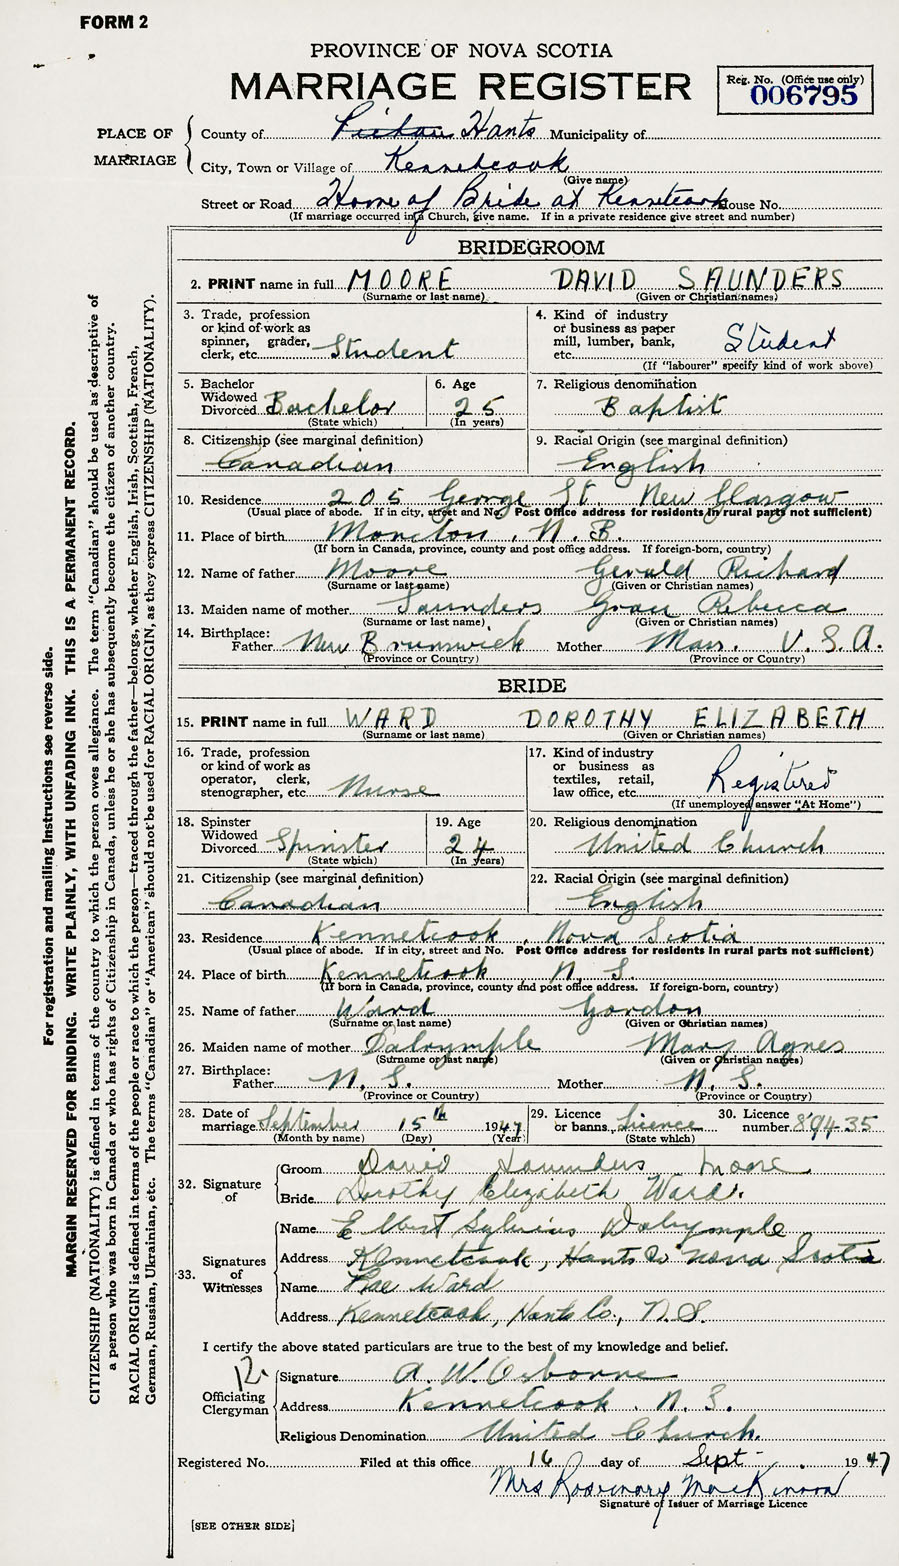 FORM 2
PROVINCE OF NOVA SCOTIA
MARRIAGE REGISTER
Reg. No. (Office use only)
006795
PLACE OF MARRIAGE
County of Pictou Hants Municipality of
City, Town or Village of Kennetcook
(Give name)
Street or Road Home of Bride at Kennetcook House No.
(If marriage occurred in a Church, give name. If in a private residence give street and number)
BRIDEGROOM
2. PRINT name in full MOORE DAVID SAUNDERS
(Surname or last name) (Given or Christian names)
3. Trade, profession or kind of work as spinner, grader, clerk, etc. Student
4. Kind of industry or business as paper mill, lumber, bank, etc. Student
(If "labourer" specify kind of work above)
5. Bachelor Widowed Divorced Bachelor
(State which)
6. Age 25
(In years)
7. Religious denomination
Baptist
8. Citizenship (see marginal definition)
Canadian
9. Racial Origin (see marginal definition)
English
10. Residence 205 George St. New Glasgow
(Usual place of abode. If in city, street and No. Post Office address for residents in rural parts not sufficient)
11. Place of birth Moncton, N.B.
(If born in Canada, province, county and post office address. If foreign-born, country)
12. Name of father Moore Gerald Richard
(Surname or last name) (Given or Christian names)
13. Maiden name of mother Saunders Grace Rebecca
(Surname or last name) (Given or Christian names)
14. Birthplace: Father New Brunswick Mother Mass. U.S.A.
(Province or Country) (Province or Country)
BRIDE
15. PRINT name in full WARD DOROTHY ELIZABETH
(Surname or last name) (Given or Christian names)
16. Trade, profession or kind of work as operator, clerk, stenographer, etc. Nurse
17. Kind of industry or business as textiles, retail, law office, etc. Registered
(If unemployed answer "At Home")
18. Spinster Widowed Divorced Spinster
(State which)
19. Age 24
(In years)
20. Religious denomination
United Church
21. Citizenship (see marginal definition)
Canadian
22. Racial Origin (see marginal definition)
English
23. Residence Kennetcook, Nova Scotia
(Usual place of abode. If in city, street and No. Post Office address for residents in rural parts not sufficient)
24. Place of birth Kennetcook N. S.
(If born in Canada, province, county and post office address. If foreign-born, country)
25. Name of father Ward Gordon
(Surname or last name) (Given or Christian names)
26. Maiden name of mother Dalrymple Mary Agnes
(Surname or last name) (Given or Christian names)
27. Birthplace: Father N. S. Mother N. S.
(Province or Country) (Province or Country)
28. Date of marriage September 15th 1947
(Month by name) (Day) (Year)
29. Licence or banns Licence
(State which)
30. Licence number 89435
32. Signature of
Groom David Saunders Moore
Bride Dorothy Elizabeth Ward.
33. Signatures of Witnesses
Name Elbert Sylvius Dalrymple
Address Kennetcook, Hants Co Nova Scotia
Name Rae Ward
Address Kennetcook, Hants Co., N.S.
I certify the above stated particulars are true to the best of my knowledge and belief.
Officiating Clergyman
Signature A. W. Osborne
Address Kennetcook. N. S.
Religious Denomination United Church.
Registered No. Filed at this office 16 day of Sept 1947
Mrs Rosemary MacKinnon
Signature of Issuer of Marriage Licence
[SEE OTHER SIDE]
For registration and mailing instructions see reverse side.
MARGIN RESERVED FOR BINDING. WRITE PLAINLY, WITH UNFADING INK. THIS IS A PERMANENT RECORD.
CITIZENSHIP (NATIONALITY) is defined in terms of the country to which the person owes allegiance. The term "Canadian" should be used as descriptive of
a person who was born in Canada or who has rights of Citizenship in Canada, unless he or she has subsequently become the citizen of another country.
RACIAL ORIGIN is defined in terms of the people or race to which the person—traced through the father—belongs, whether English, Irish, Scottish, French,
German, Russian, Ukrainian, etc. The terms "Canadian" or "American" should not be used for RACIAL ORIGIN, as they express CITIZENSHIP (NATIONALITY).